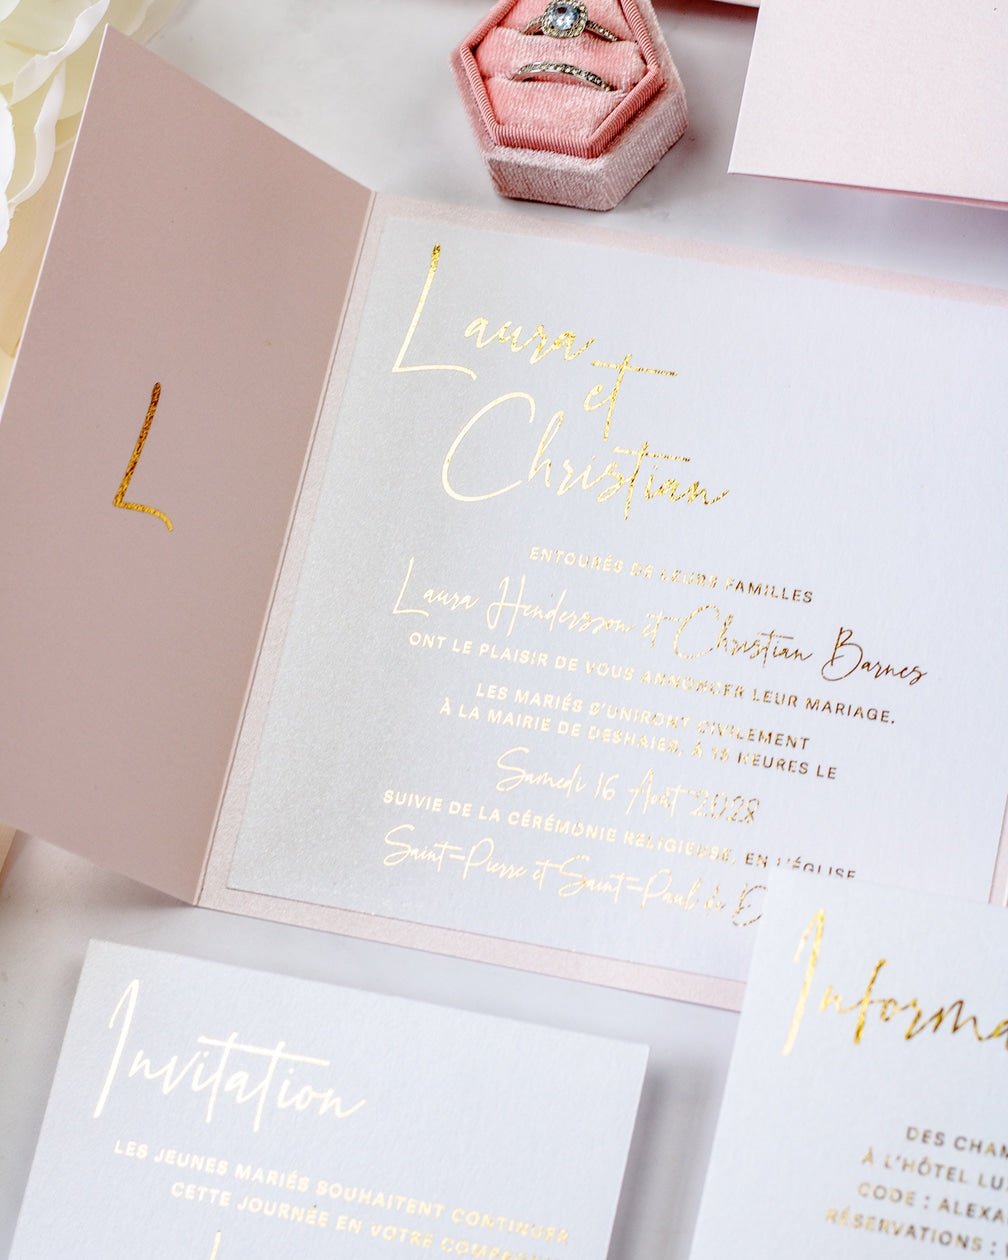 L
Laura
et
Christian
ENTOURÉS DE LEURS FAMILLES
Laura Hendersson et Christian Barnes
ONT LE PLAISIR DE VOUS ANNONCER LEUR MARIAGE.
LES MARIÉS S'UNIRONT CIVILEMENT
À LA MAIRIE DE DESHAIES, À 15 HEURES LE
Samedi 16 Août 2028
SUIVIE DE LA CÉRÉMONIE RELIGIEUSE, EN L'ÉGLISE
Saint-Pierre et Saint-Paul de D
Invitation
LES JEUNES MARIÉS SOUHAITENT CONTINUER
CETTE JOURNÉE EN VOTRE COMPAGNIE
Informa
DES CHAM
À L'HÔTEL LU
CODE : ALEXA
RÉSERVATIONS :